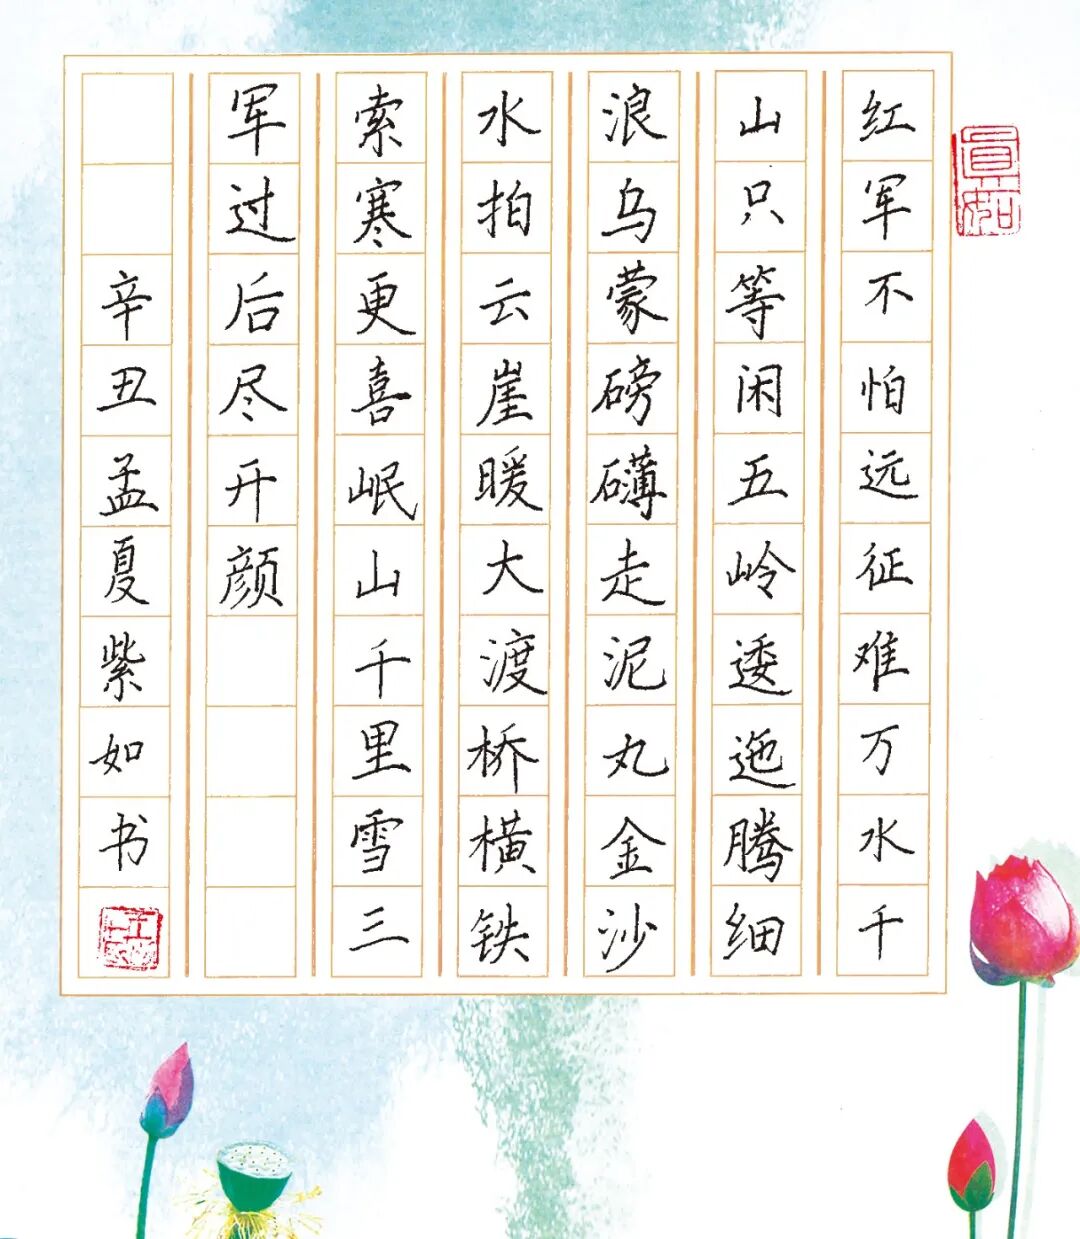 红军不怕远征难万水千
山只等闲五岭逶迤腾细
浪乌蒙磅礴走泥丸金沙
水拍云崖暖大渡桥横铁
索寒更喜岷山千里雪三
军过后尽开颜
辛丑孟夏紫如书